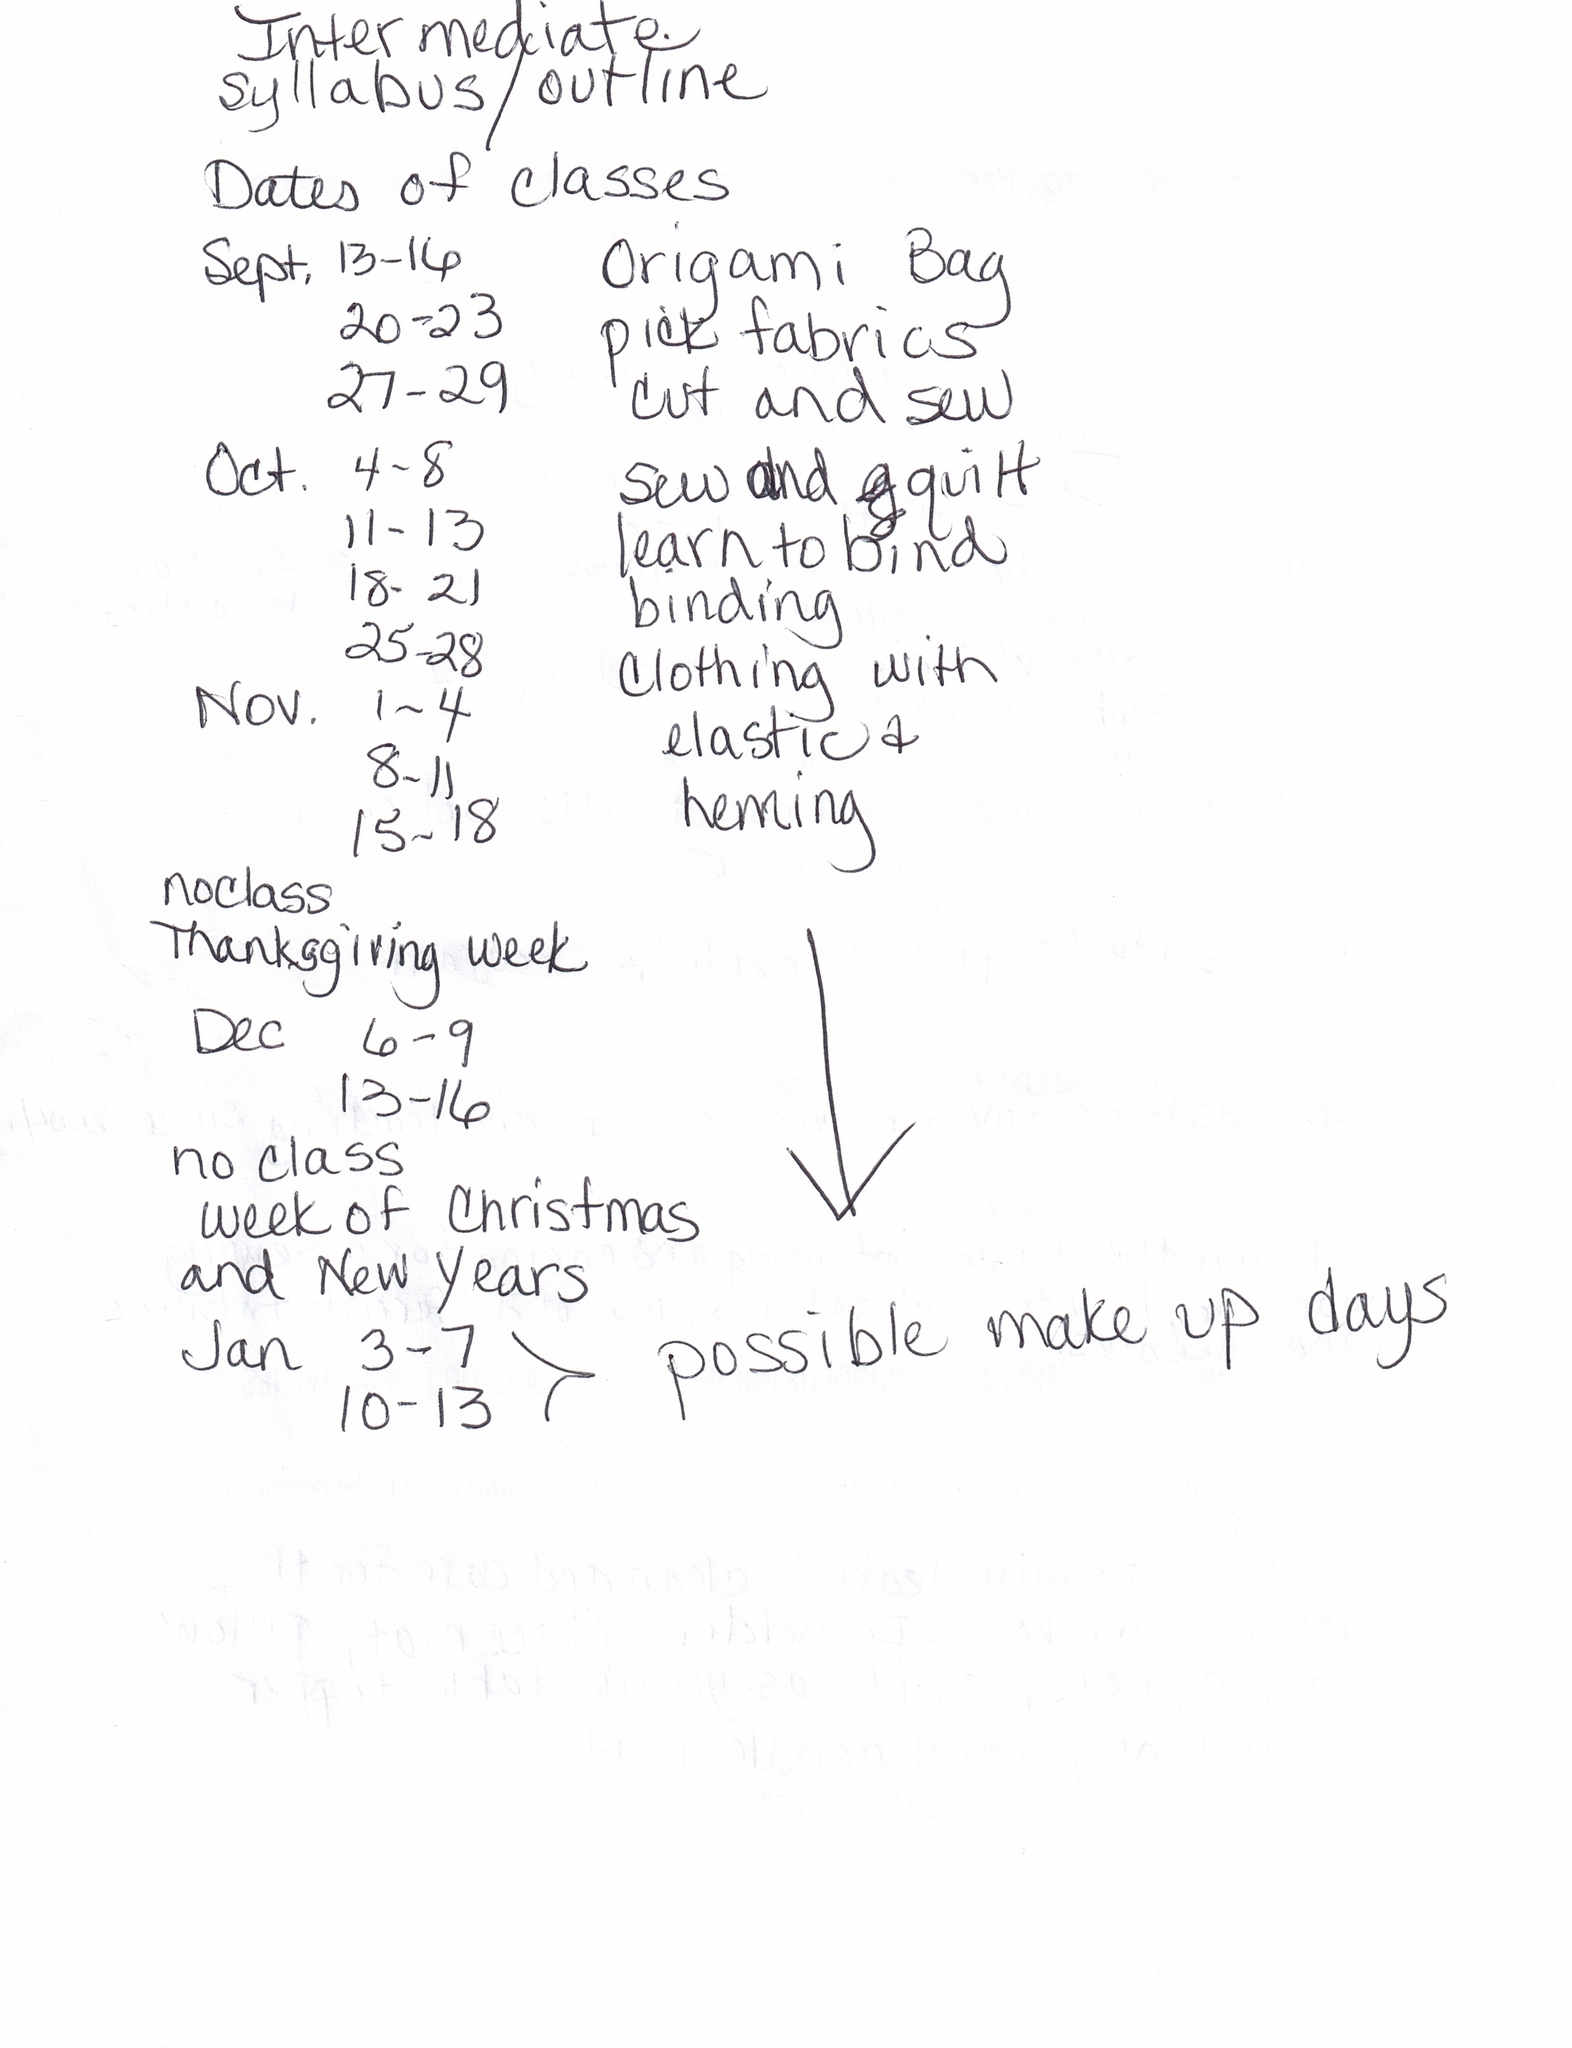 Intermediate
syllabus/outline
Dates of classes
Sept. 13-16 Origami Bag
20-23 pick fabrics
27-29 cut and sew
Oct. 4-8 sew and quilt
11-13 learn to bind
18-21 binding
25-28 Clothing with
Nov. 1-4 elastic &
8-11 heming
15-18
noclass
Thanksgiving week
Dec 6-9
13-16
no class
week of Christmas
and New Years
Jan 3-7 possible make up days
10-13